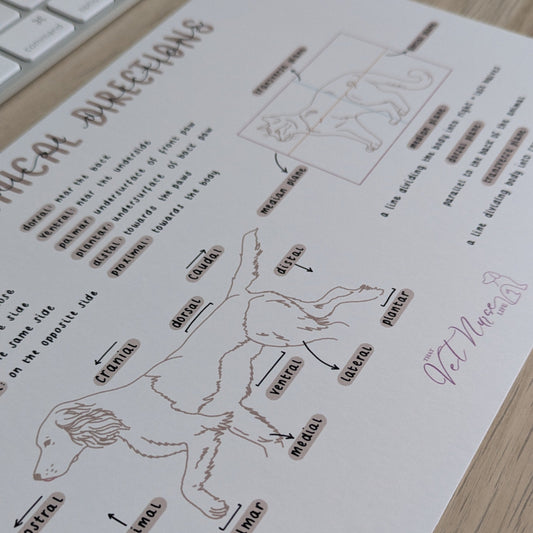 ⌘
command
command
DIRECTIONS
directions
dorsal near the back
ventral near the underside
palmar undersurface of front paw
plantar undersurface of back paw
distal towards the paws
proximal towards the body
side
same side
on the opposite side
transverse plane
median plane
median plane
a line dividing the body into right + left halves
dorsal plane
parallel to the back of the animal
transverse plane
a line dividing body into
caudal
distal
dorsal
plantar
cranial
lateral
ventral
medial
THAT
Vet Nurse
LIFE